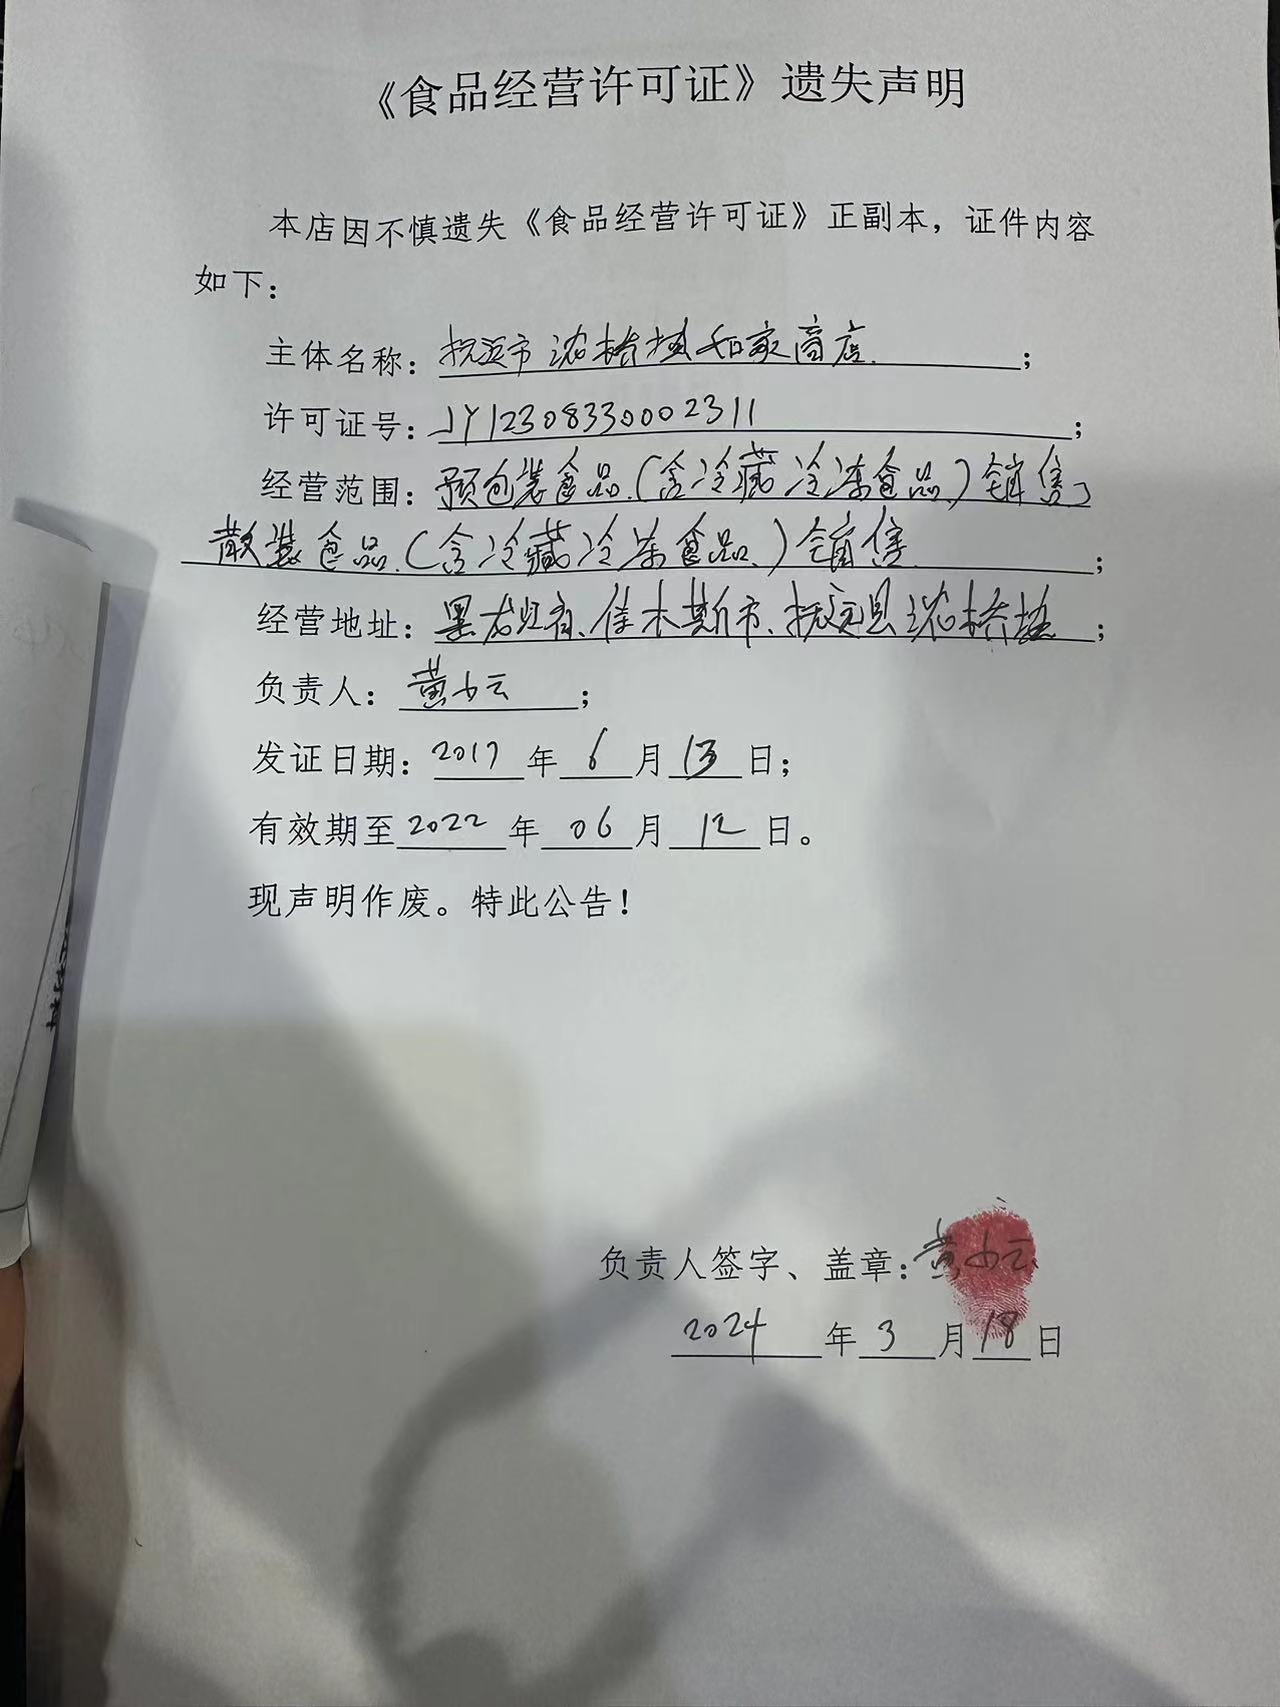 《食品经营许可证》遗失声明
本店因不慎遗失《食品经营许可证》正副本，证件内容
如下：
主体名称：抚远市浓桥镇和家商店；
许可证号：JY12308330002311；
经营范围：预包装食品（含冷藏冷冻食品）销售、
散装食品（含冷藏冷冻食品）销售；
经营地址：黑龙江省、佳木斯市、抚远县浓桥镇；
负责人：黄小云；
发证日期：2017年6月13日；
有效期至2022年06月12日。
现声明作废。特此公告！
负责人签字、盖章：黄小云
2024年3月18日